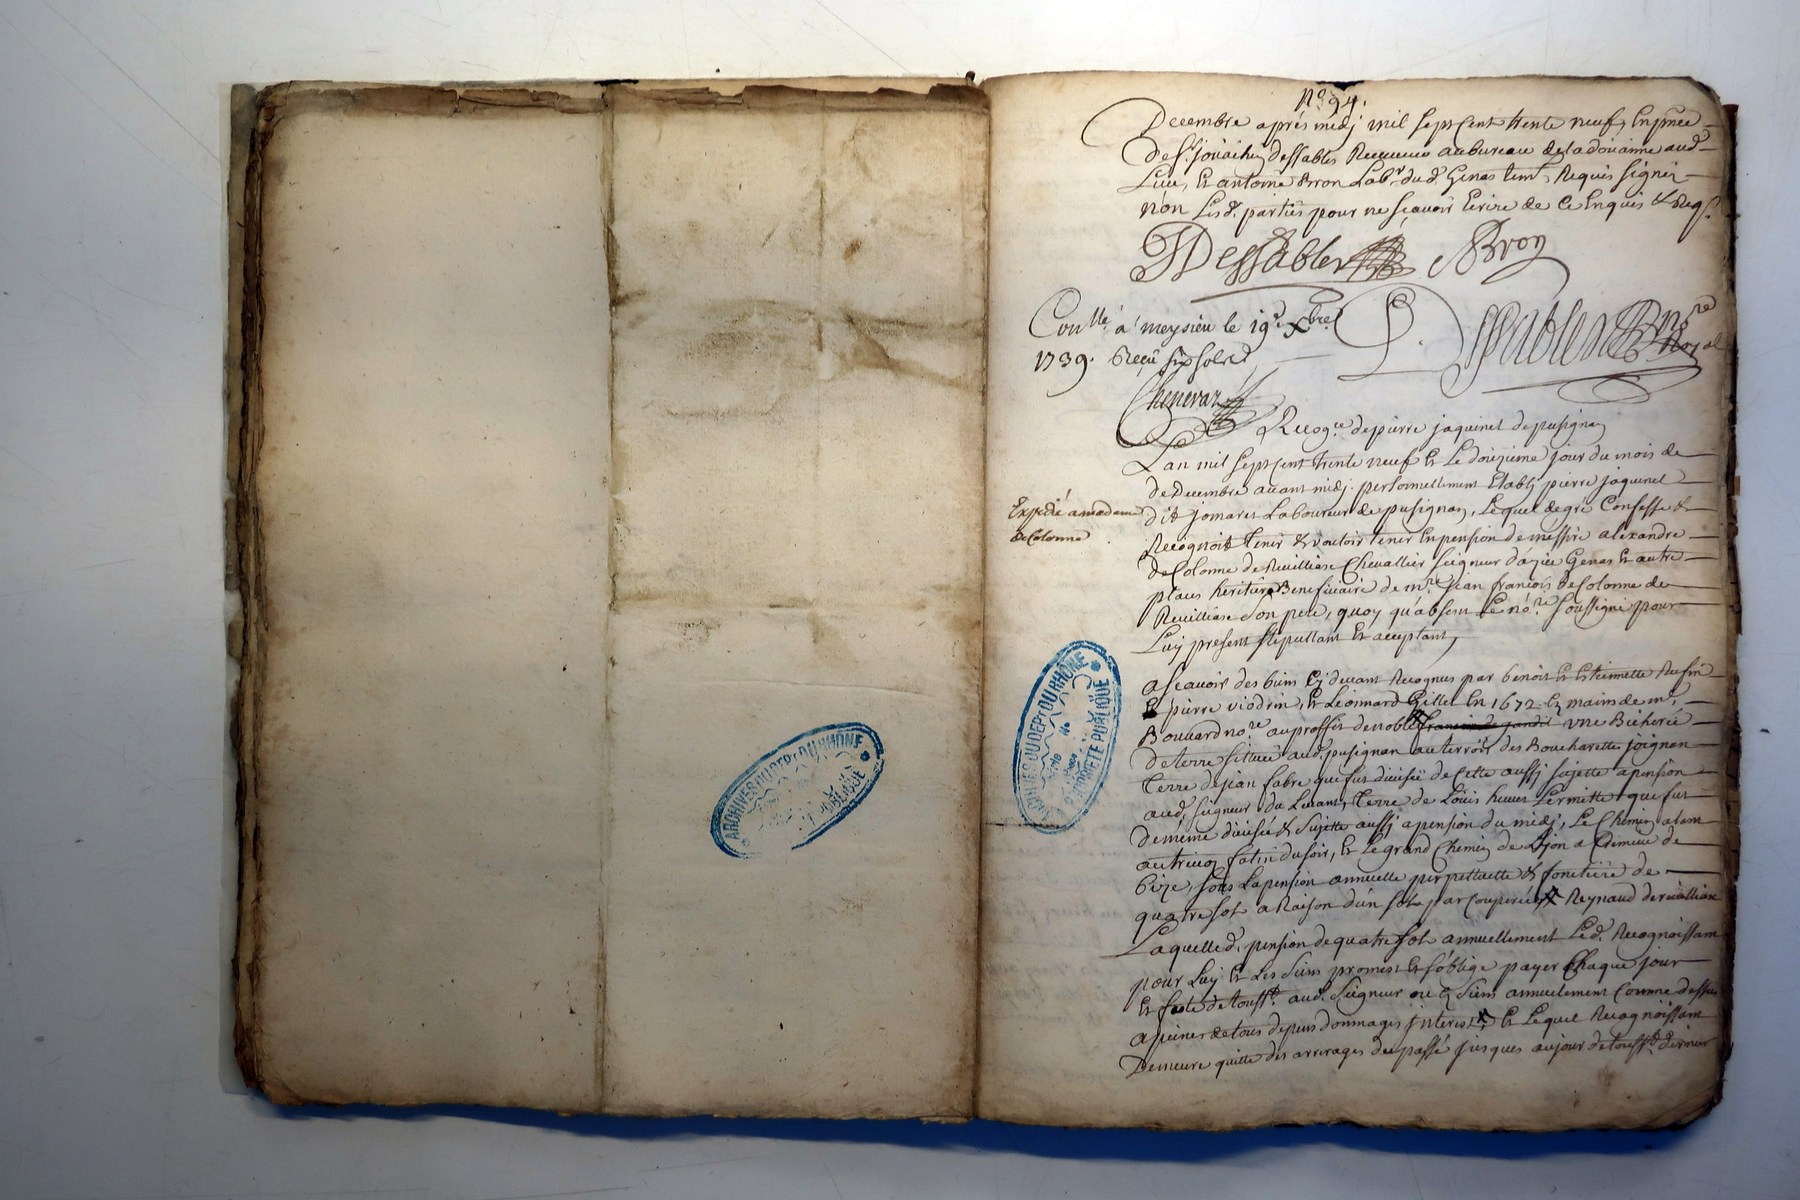 N.° 94.
Decembre aprés midj mil sept Cent trente neuf, En pnce
De S.r joüachin dessables Receveur au bureau de la doüanne aud.
Lieu, Et antoine Bron Lab.r du d. Genas tem.s Requis signér
non Les d. partiés pour ne sçavoir Ecrire de Ce Enquis & Req.s
JDessables Bron
Con.llé à meysieu le 19.e Xbre
1739. Reçu six sols
Dessables No.re Royal
Chenevaz
Recog.ce de pierre jaquinet de pusignan
L'an mil sept Cent trente neuf Et Le douzieme jour du mois de
de Decembre avant midj personnellement Etablj pierre jaquinet
dit jomaret Laboureur de pusignan, Lequel de gré Confesse &
Recognoit tenir & vouloir tenir En pension de messire alexandre
de Colonne de Chevallier seigneur d'azieu Genas Et autre
places heritier Beneficiaire de m.re jean françois de Colonne de
son pere, quoy qu'absent Le no.re soussigné pour
Luy present stipullant Et acceptant,
Expedié a madame
de Colonne
a sçavoir des biens Cy devant Recognus par benoit Et Etiennette
Et pierre viodrin, Et Leonnard Gillet En 1672 Ez mains de m.e
Bouvard no.re au proffit de noble une Bicherée
de terre sittuée aud. pusignan au terroir des Boucharettes joignant
Terre de jean fabre que fut divisée de Cette aussj sujette a pension
aud. seigneur du Levant, Terre de Loüis Lermitte que fut
de meme divisée & sujette aussj a pension du midj, Le Chemin
du soir, Et Le grand Chemin de Lyon a Cremieu de
bize, sous La pension annuelle perpettuelle & fonciere de
quatre sols a Raison d'un sol par Couperée Reynaud de
Laquelle d. pension de quatre sols annuellement Led. Recognoissant
pour Luy Et Les siens promest Et s'oblige payer Chaque jour
Et feste de touss.ts aud. seigneur ou Ez siens annuelement Comme dessus
a peines de tous depens dommages jnterest Et Lequel Recognoissant
Demeure quitte des arrerages du passé jusques au jour de touss.ts dernier
ARCHIVES DU DEP.T DU RHÔNE
PROPRIETE PUBLIQUE
ARCHIVES DU DEP.T DU RHÔNE
PUBLIQUE